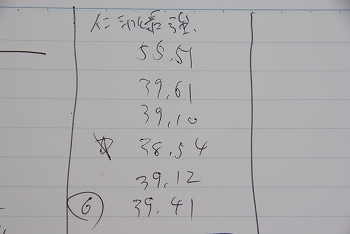 55.51
39.61
39.10
38.54
39.12
6 39.41